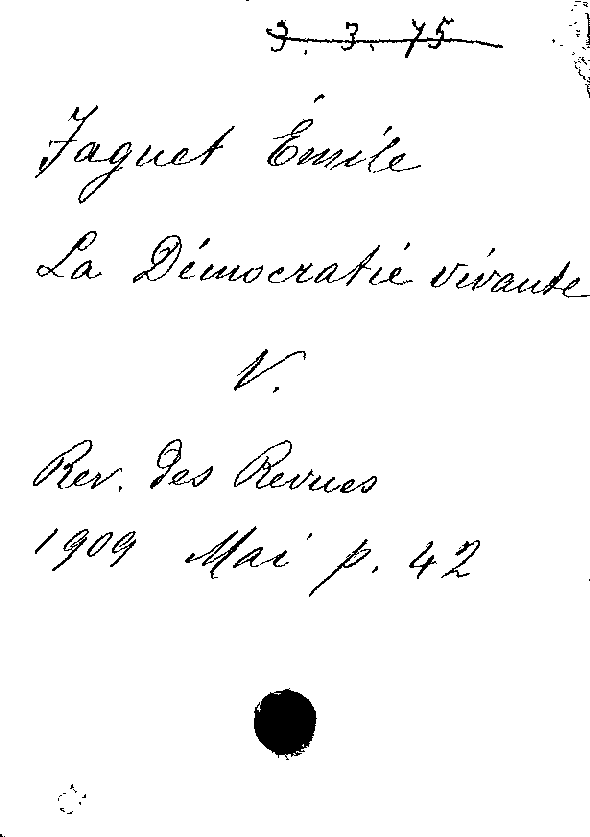 3. 3. 75
Faguet Émile
La Démocratie vivante
V.
Rev. des Revues
1909 Mai p. 42